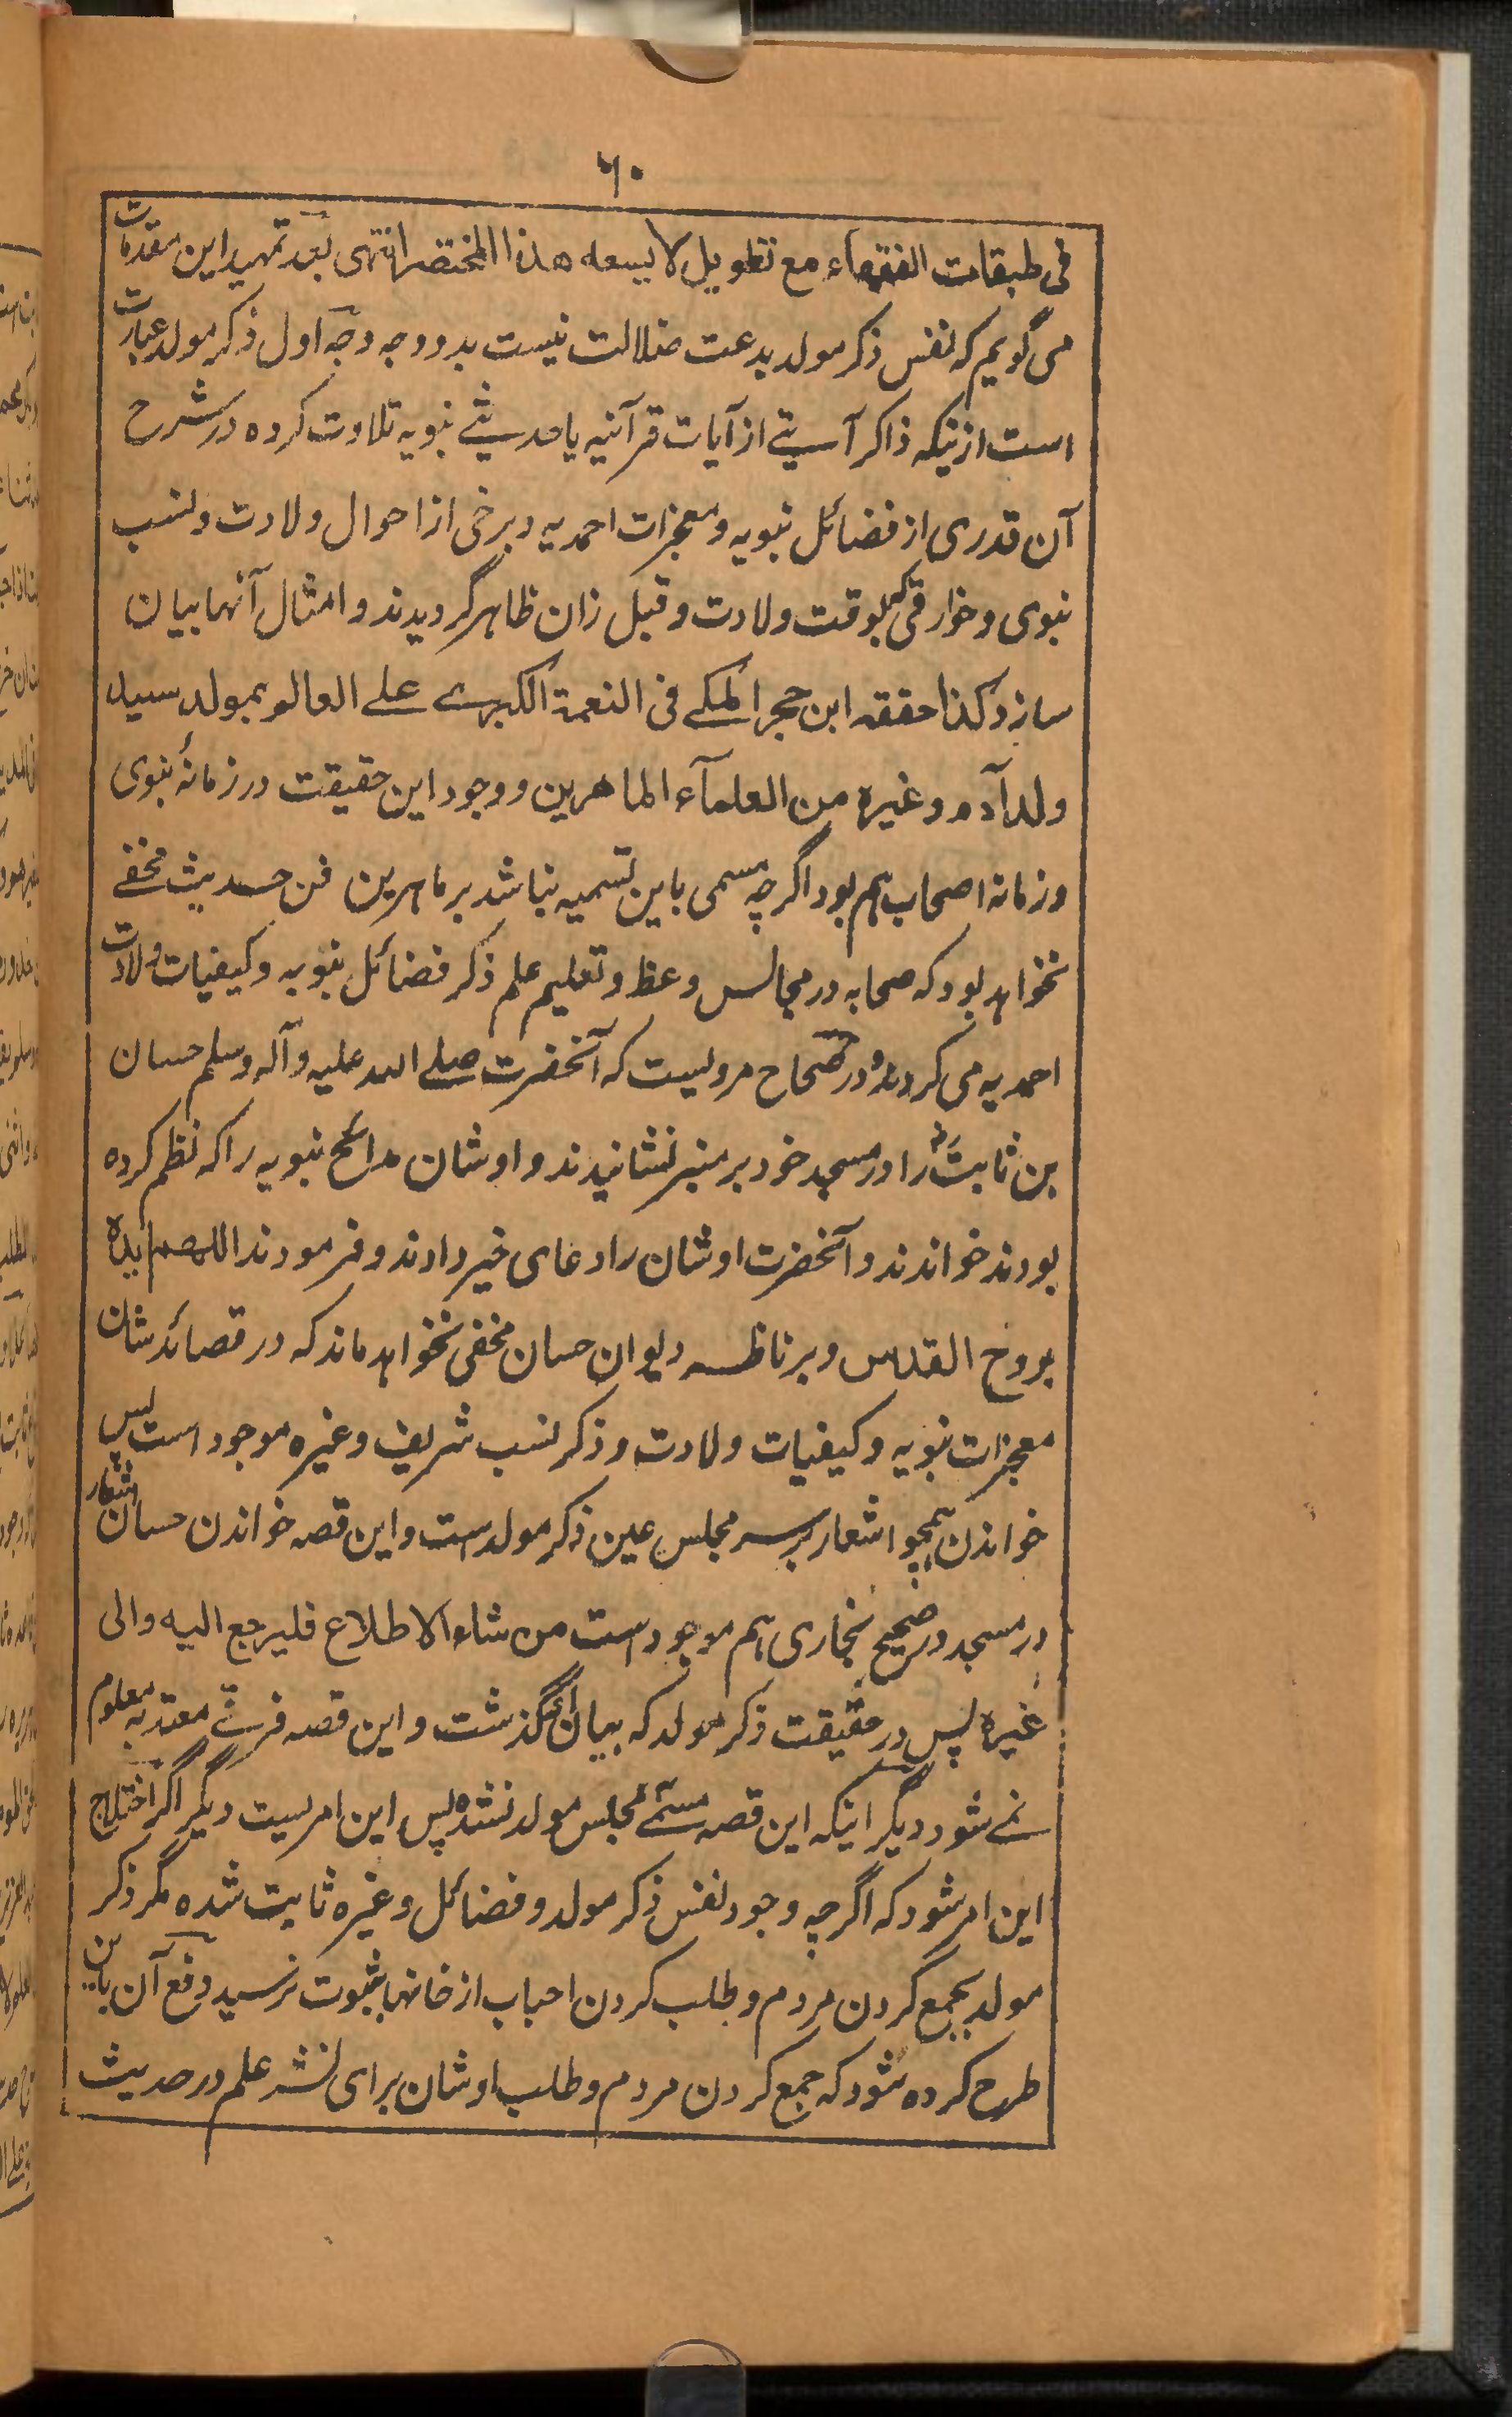 ۶۰
فی طبقات الفقهاء مع تطویل لا یسعه هذا المختصر انتهی بعد تمهید این مقدمات
می گویم که نفس ذکر مولد بدعت ضلالت نیست بدو وجه وجه اول ذکر مولد عبارت
است ازینکه ذاکر آیتے از آیات قرآنیه یا حدیثے نبویه تلاوت کرده در شرح
آن قدری از فضائل نبویه و معجزات احمدیه و برخی از احوال ولادت و نسب
نبوی و خوارقی که بوقت ولادت و قبل زان ظاهر گردیدند و امثال آنها بیان
سازد کذا حققه ابن حجر المکے فی النعمة الکبرے علے العالم بمولد سید
ولد آدم وغیره من العلمآء الماهرین و وجود این حقیقت در زمانهٔ نبوی
و زمانه اصحاب هم بود اگرچه مسمی باین تسمیه نباشد بر ماهرین فن حدیث مخفے
نخواهد بود که صحابه در مجالس وعظ و تعلیم علم ذکر فضائل نبویه و کیفیات ولادت
احمدیه می کردند و در صحاح مرویست که آنحضرت صلے الله علیه وآله وسلم حسان
بن ثابت رض را در مسجد خود بر منبر نشانیدند و اوشان مدائح نبویه را که نظم کرده
بودند خواندند و آنحضرت اوشان را دعای خیر دادند و فرمودند اللهم ایده
بروح القدس و بر ناظر دیوان حسان مخفی نخواهد ماند که در قصائد شان
معجزات نبویه و کیفیات ولادت و ذکر نسب شریف وغیره موجود است پس
خواندن همچو اشعار بر سر مجلس عین ذکر مولد است و این قصه خواندن حسان اشعار
در مسجد در صحیح بخاری هم موجود است من شاء الاطلاع فلیرجع الیه والی
غیره پس در حقیقت ذکر مولد که بیان آن گذشت و این قصه فرقے معتد به معلوم
نمے شود دیگر اینکه این قصه مسمے بمجلس مولد نشده پس این امریست دیگر اگر اختلاج
این امر شود که اگرچه وجود نفس ذکر مولد و فضائل وغیره ثابت شده مگر ذکر
مولد بجمع کردن مردم و طلب کردن احباب از خانها بثبوت نرسید دفع آن باین
طرح کرده شود که جمع کردن مردم و طلب اوشان برای نشر علم در حدیث